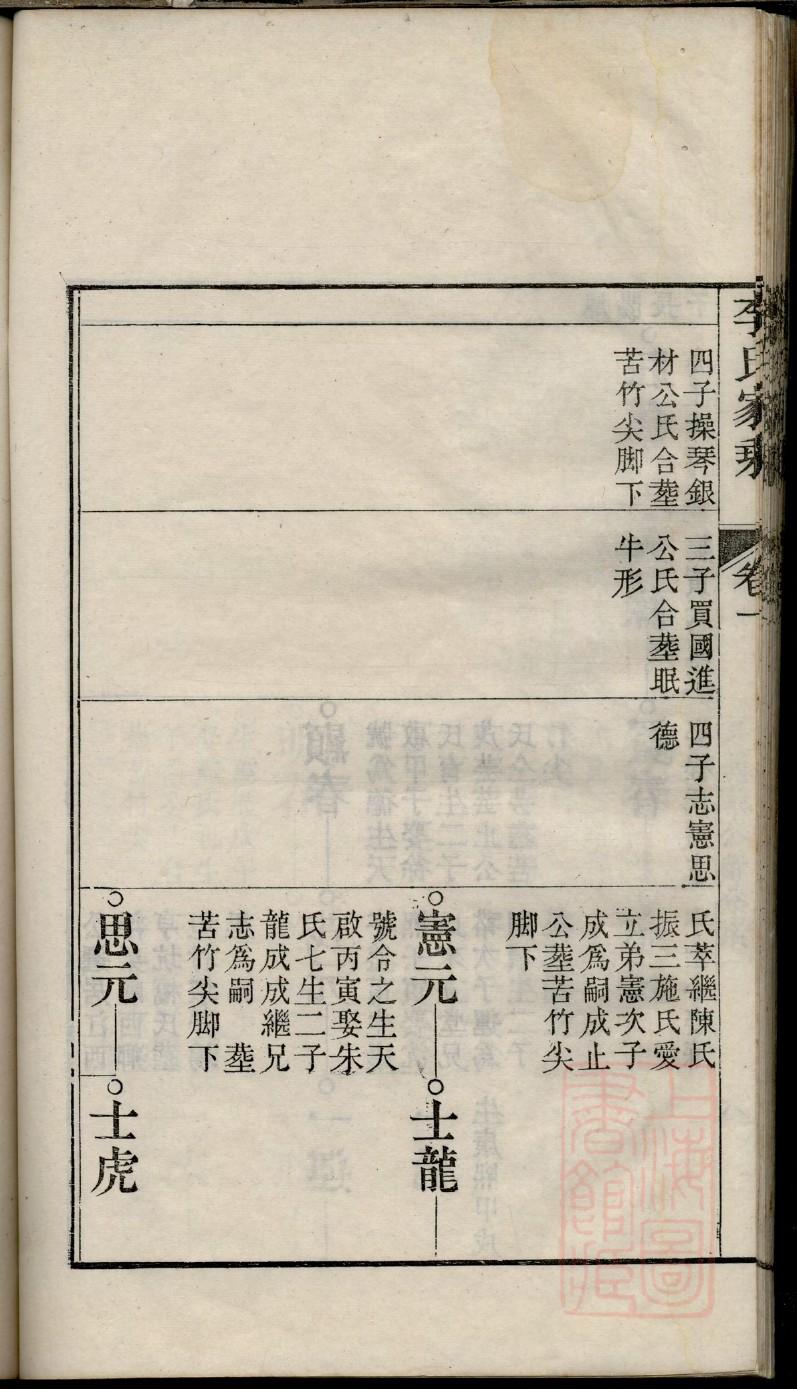 李氏家乘
卷一
四子操琴銀
材公氏合塟
苦竹尖脚下
三子買國進
公氏合塟眠
牛形
四子志憲思
德
氏萃繼陳氏
振三施氏愛
立弟憲次子
成爲嗣成止
公塟苦竹尖
脚下
憲元
號令之生天
啟丙寅娶朱
氏七生二子
龍成成繼兄
志爲嗣 塟
苦竹尖脚下
士龍
思元
士虎
上海圖
書館藏